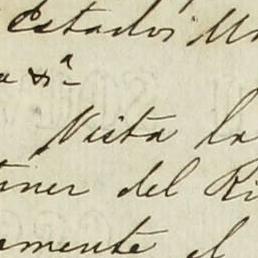 Estados Un
a &ª
Vista la
tiner del Ri
emente el